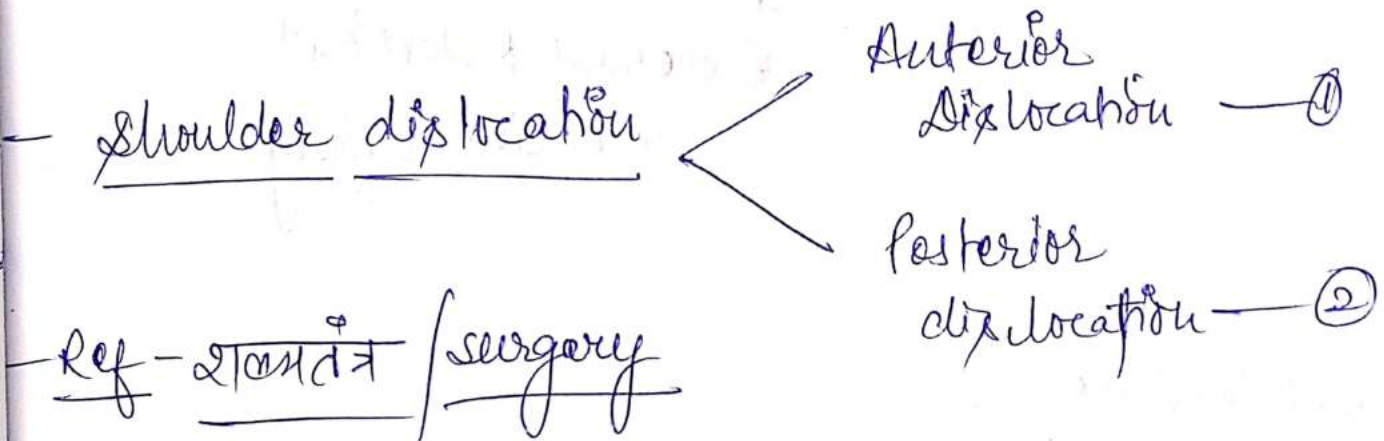 - Shoulder dislocation
Anterior
Dislocation — ①
Posterior
dislocation — ②
- Ref - शल्यतंत्र / surgery